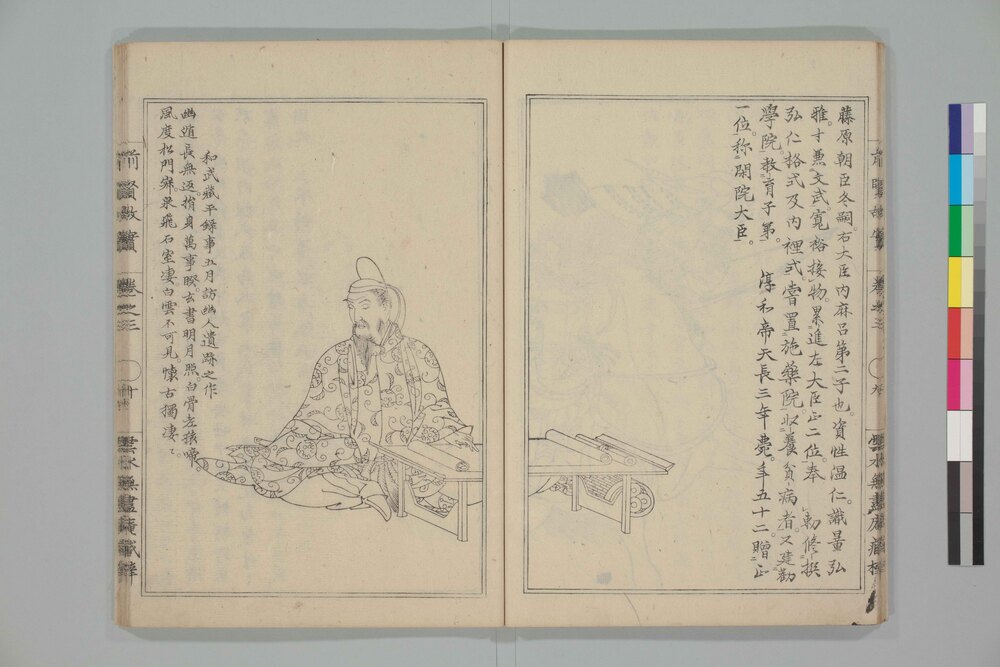 藤原朝臣冬嗣。右大臣内麻呂第二子也。資性温仁。識量弘
雅。才兼文武寛裕接物。累進左大臣正二位奉 勅修撰
弘仁格式及内裡式嘗置施藥院。收養貧病者。又建勸
學院。教育子弟。 淳和帝天長三年薨。年五十二。贈正
一位。称閑院大臣。
和武藏平録事五月訪幽人遺跡之作
幽趙長無返。捐身萬事睽。玄書明月照。白骨老猿啼
風度松門寂。泉飛石室凄白雲不可見。懐古獨凄〻。
前賢故實 卷之三
雲水無盡庵藏梓